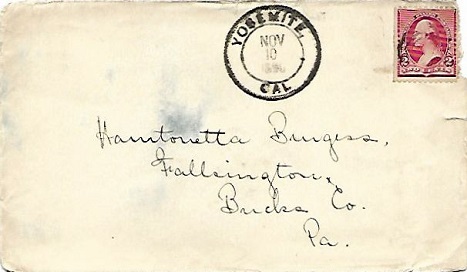 YOSEMITE,
NOV
10
CAL
2 2
Hamtonetta Burgess,
Fallsington,
Bucks Co.
Pa.